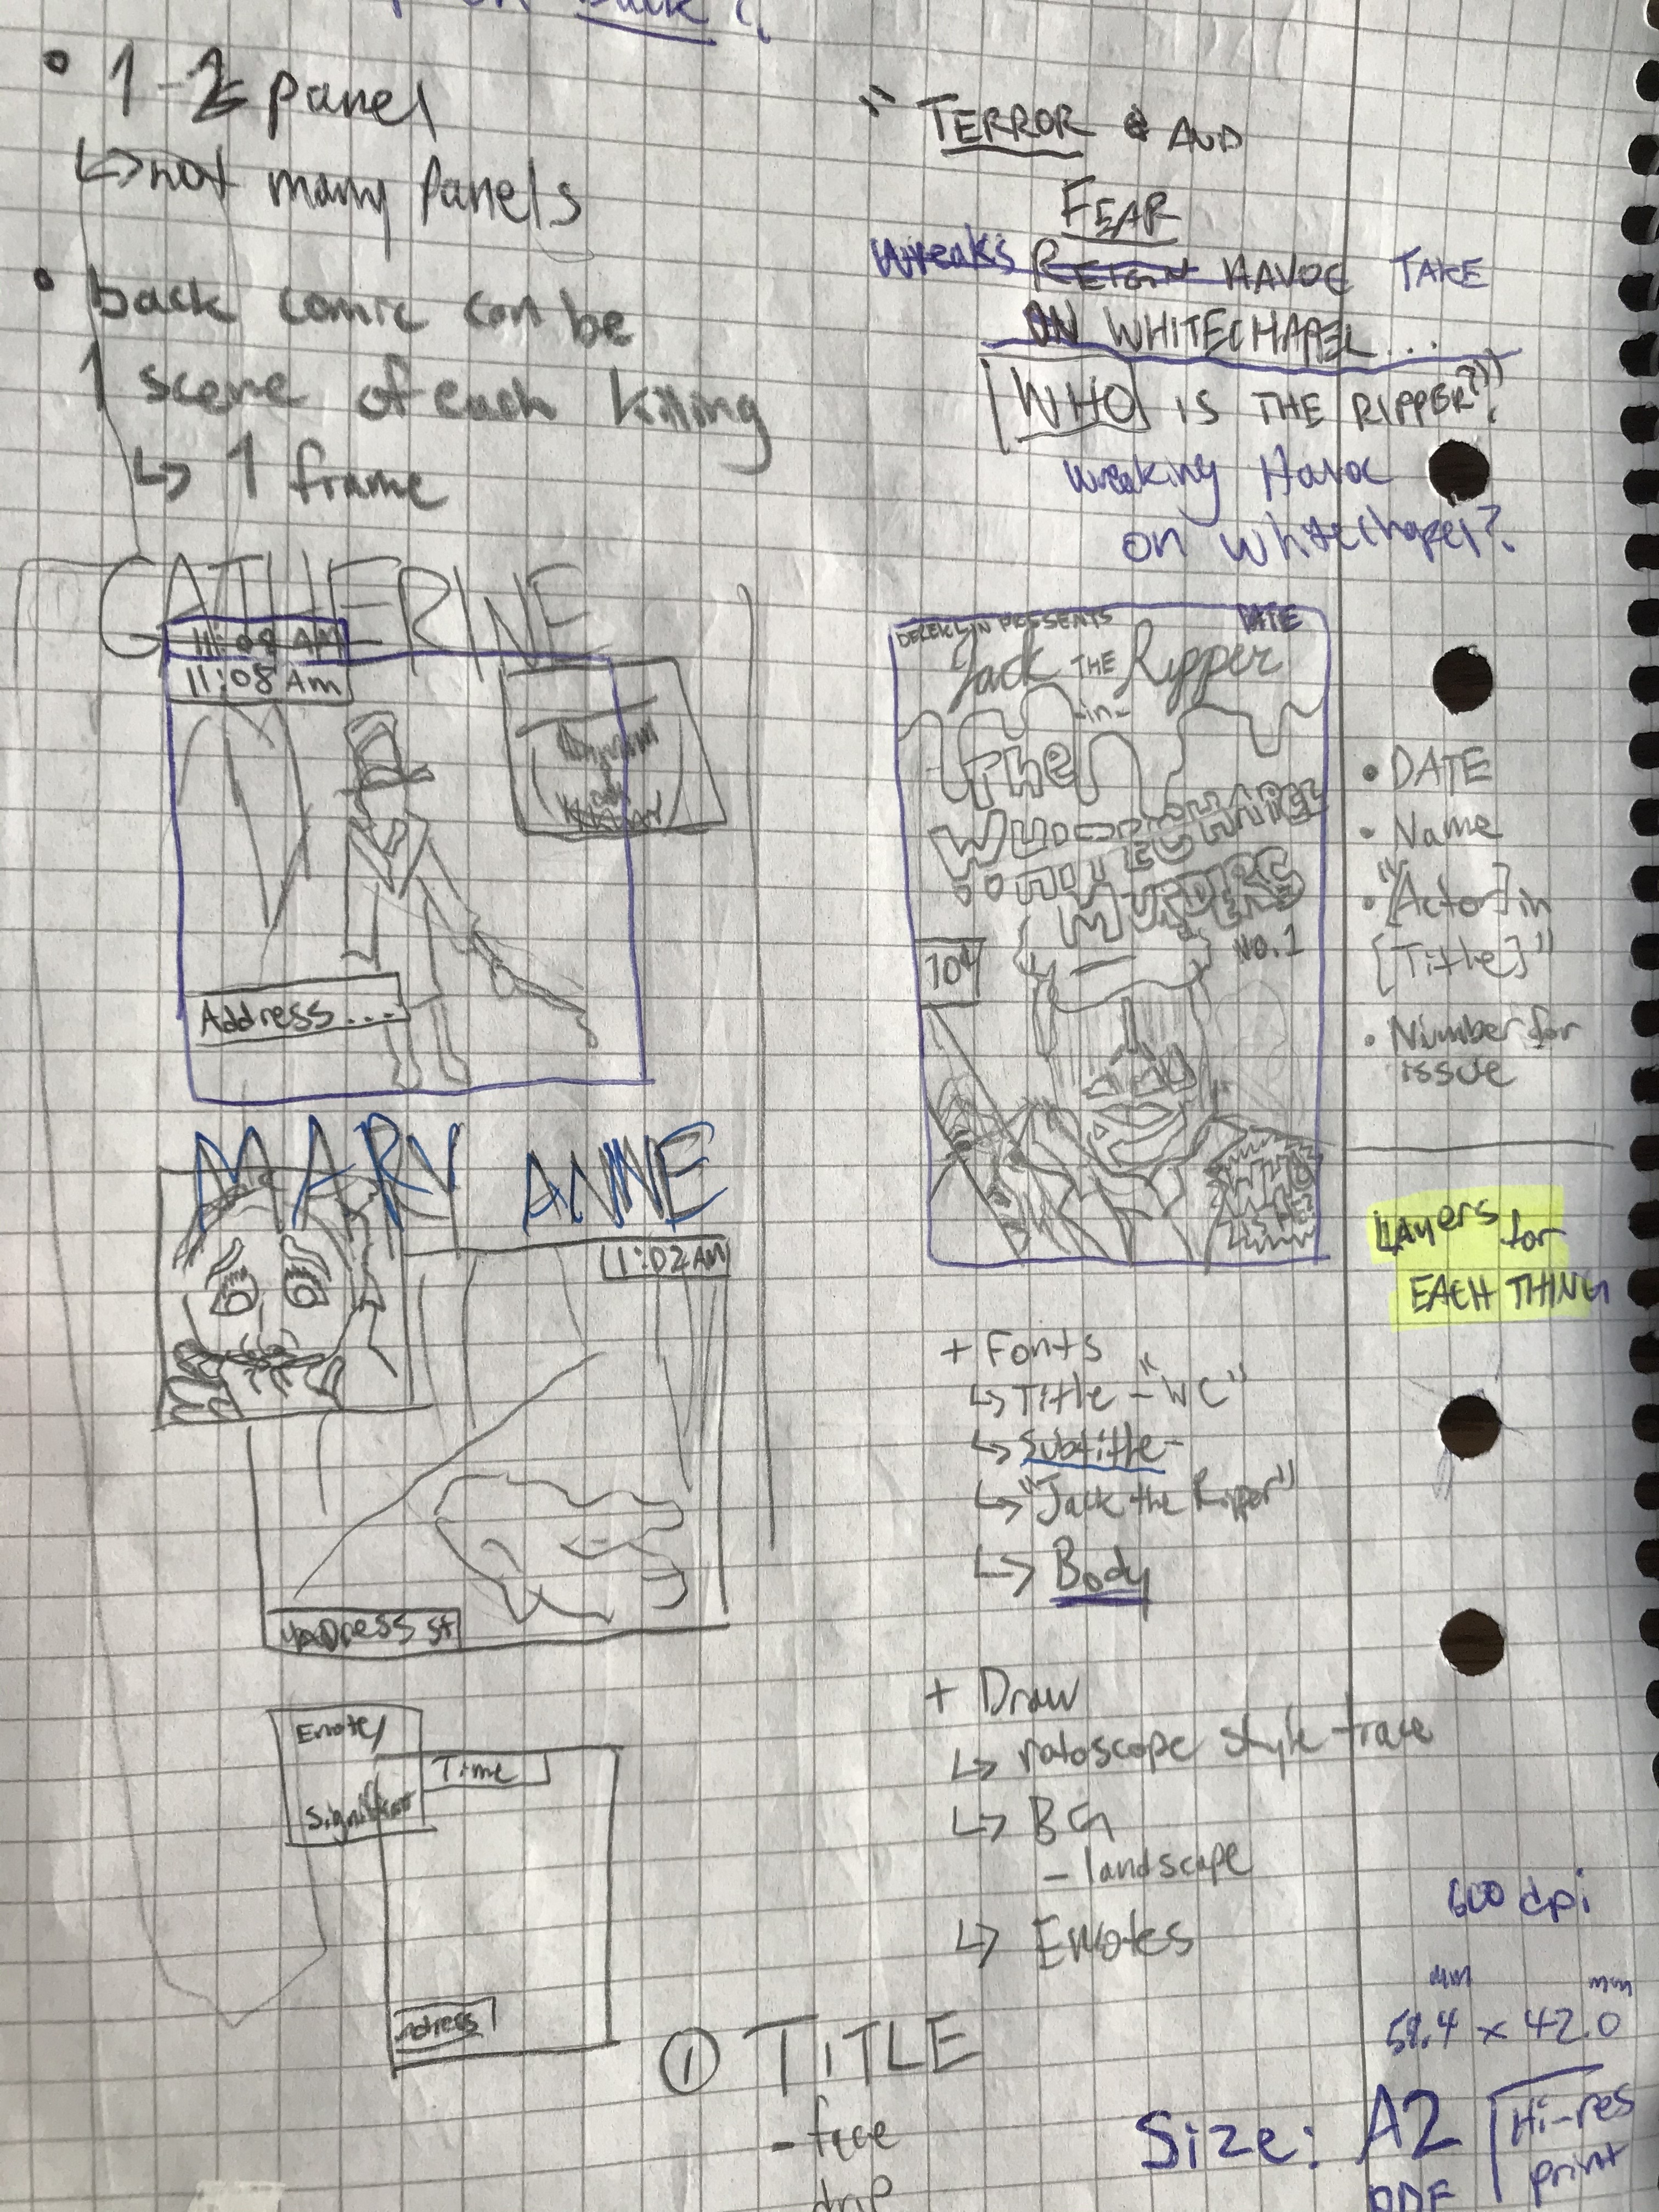 on back?
• 1-2 panel
↳ not many panels
• back comic can be
1 scene of each killing
↳ 1 frame
"TERROR & AND
FEAR
wreaks REIGN HAVOC TAKE
ON WHITECHAPEL...
WHO IS THE RIPPER?"
wreaking Havoc
on whitechapel?
CATHERINE
11:08 AM
11:08 Am
Address...
MARY ANNE
11:02 AM
ADDress st
Emote/
Significant
Time
Address
DEREK LIN PRESENTS
DATE
Jack THE Ripper
-in-
The
WHITECHAPEL
MURDERS
NO.1
10¢
WHO
WAS
HE?
• DATE
• Name
• "[Actor] in
[Title]"
• Number for
issue
Layers for
EACH THING
+ Fonts
↳ Title - "WC"
↳ Subtitle -
↳ "Jack the Ripper"
↳ Body
+ Draw
↳ rotoscope style trace
↳ BG
- landscape
↳ Emotes
① TITLE
- face
drip
600 dpi
mm mm
59.4 x 42.0
Size: A2
PDF
Hi-res
print